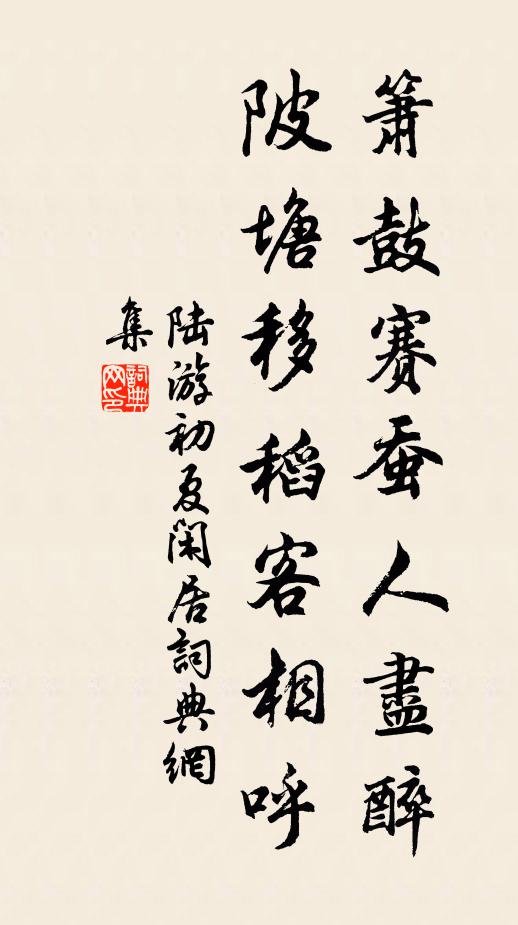 簫鼓賽蚕人盡醉
陂塘移稻客相呼
陸游初夏閑居詞典網
集
詞典网印